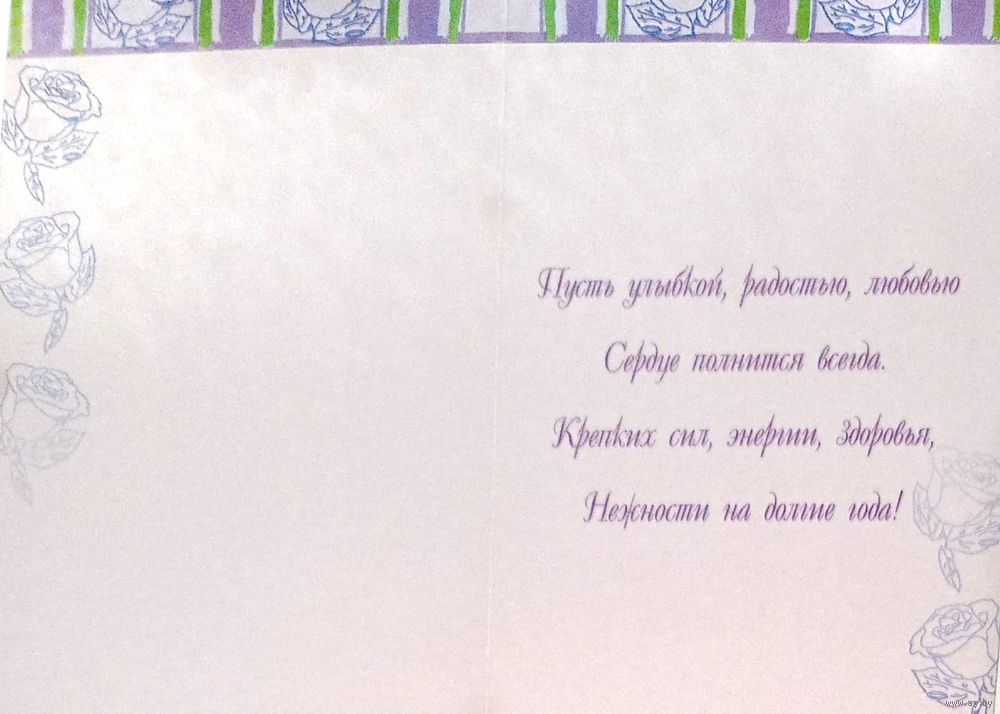 Пусть улыбкой, радостью, любовью
Сердце полнится всегда.
Крепких сил, энергии, здоровья,
Нежности на долгие года!
www.ay.by